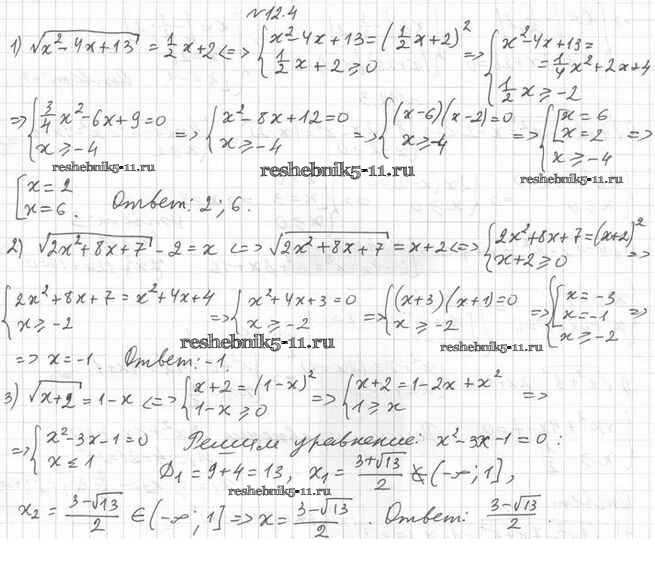 №12.4
1) √(x²-4x+13) = 1/2 x+2 <=> { x²-4x+13=(1/2 x+2)² ; 1/2 x+2≥0 => { x²-4x+13= =1/4 x²+2x+4 ; 1/2 x≥-2
=> { 3/4 x²-6x+9=0 ; x≥-4 => { x²-8x+12=0 ; x≥-4 => { (x-6)(x-2)=0 ; x≥-4 => { [ x=6 ; x=2 ; x≥-4 =>
reshebnik5-11.ru reshebnik5-11.ru reshebnik5-11.ru
[ x=2 ; x=6. Ответ: 2; 6.
2) √(2x²+8x+7) -2=x <=> √(2x²+8x+7) = x+2 <=> { 2x²+8x+7=(x+2)² ; x+2≥0 =>
{ 2x²+8x+7=x²+4x+4 ; x≥-2 => { x²+4x+3=0 ; x≥-2 => { (x+3)(x+1)=0 ; x≥-2 => { [ x=-3 ; x=-1 ; x≥-2 =>
reshebnik5-11.ru reshebnik5-11.ru
=> x=-1. Ответ: -1.
3) √(x+2) = 1-x <=> { x+2=(1-x)² ; 1-x≥0 => { x+2=1-2x+x² ; 1≥x =>
=> { x²-3x-1=0 ; x≤1 Решим уравнение: x²-3x-1=0:
D₁=9+4=13, x₁= (3+√13)/2 ∉ (-∞; 1],
reshebnik5-11.ru
x₂= (3-√13)/2 ∈ (-∞; 1] => x= (3-√13)/2. Ответ: (3-√13)/2.